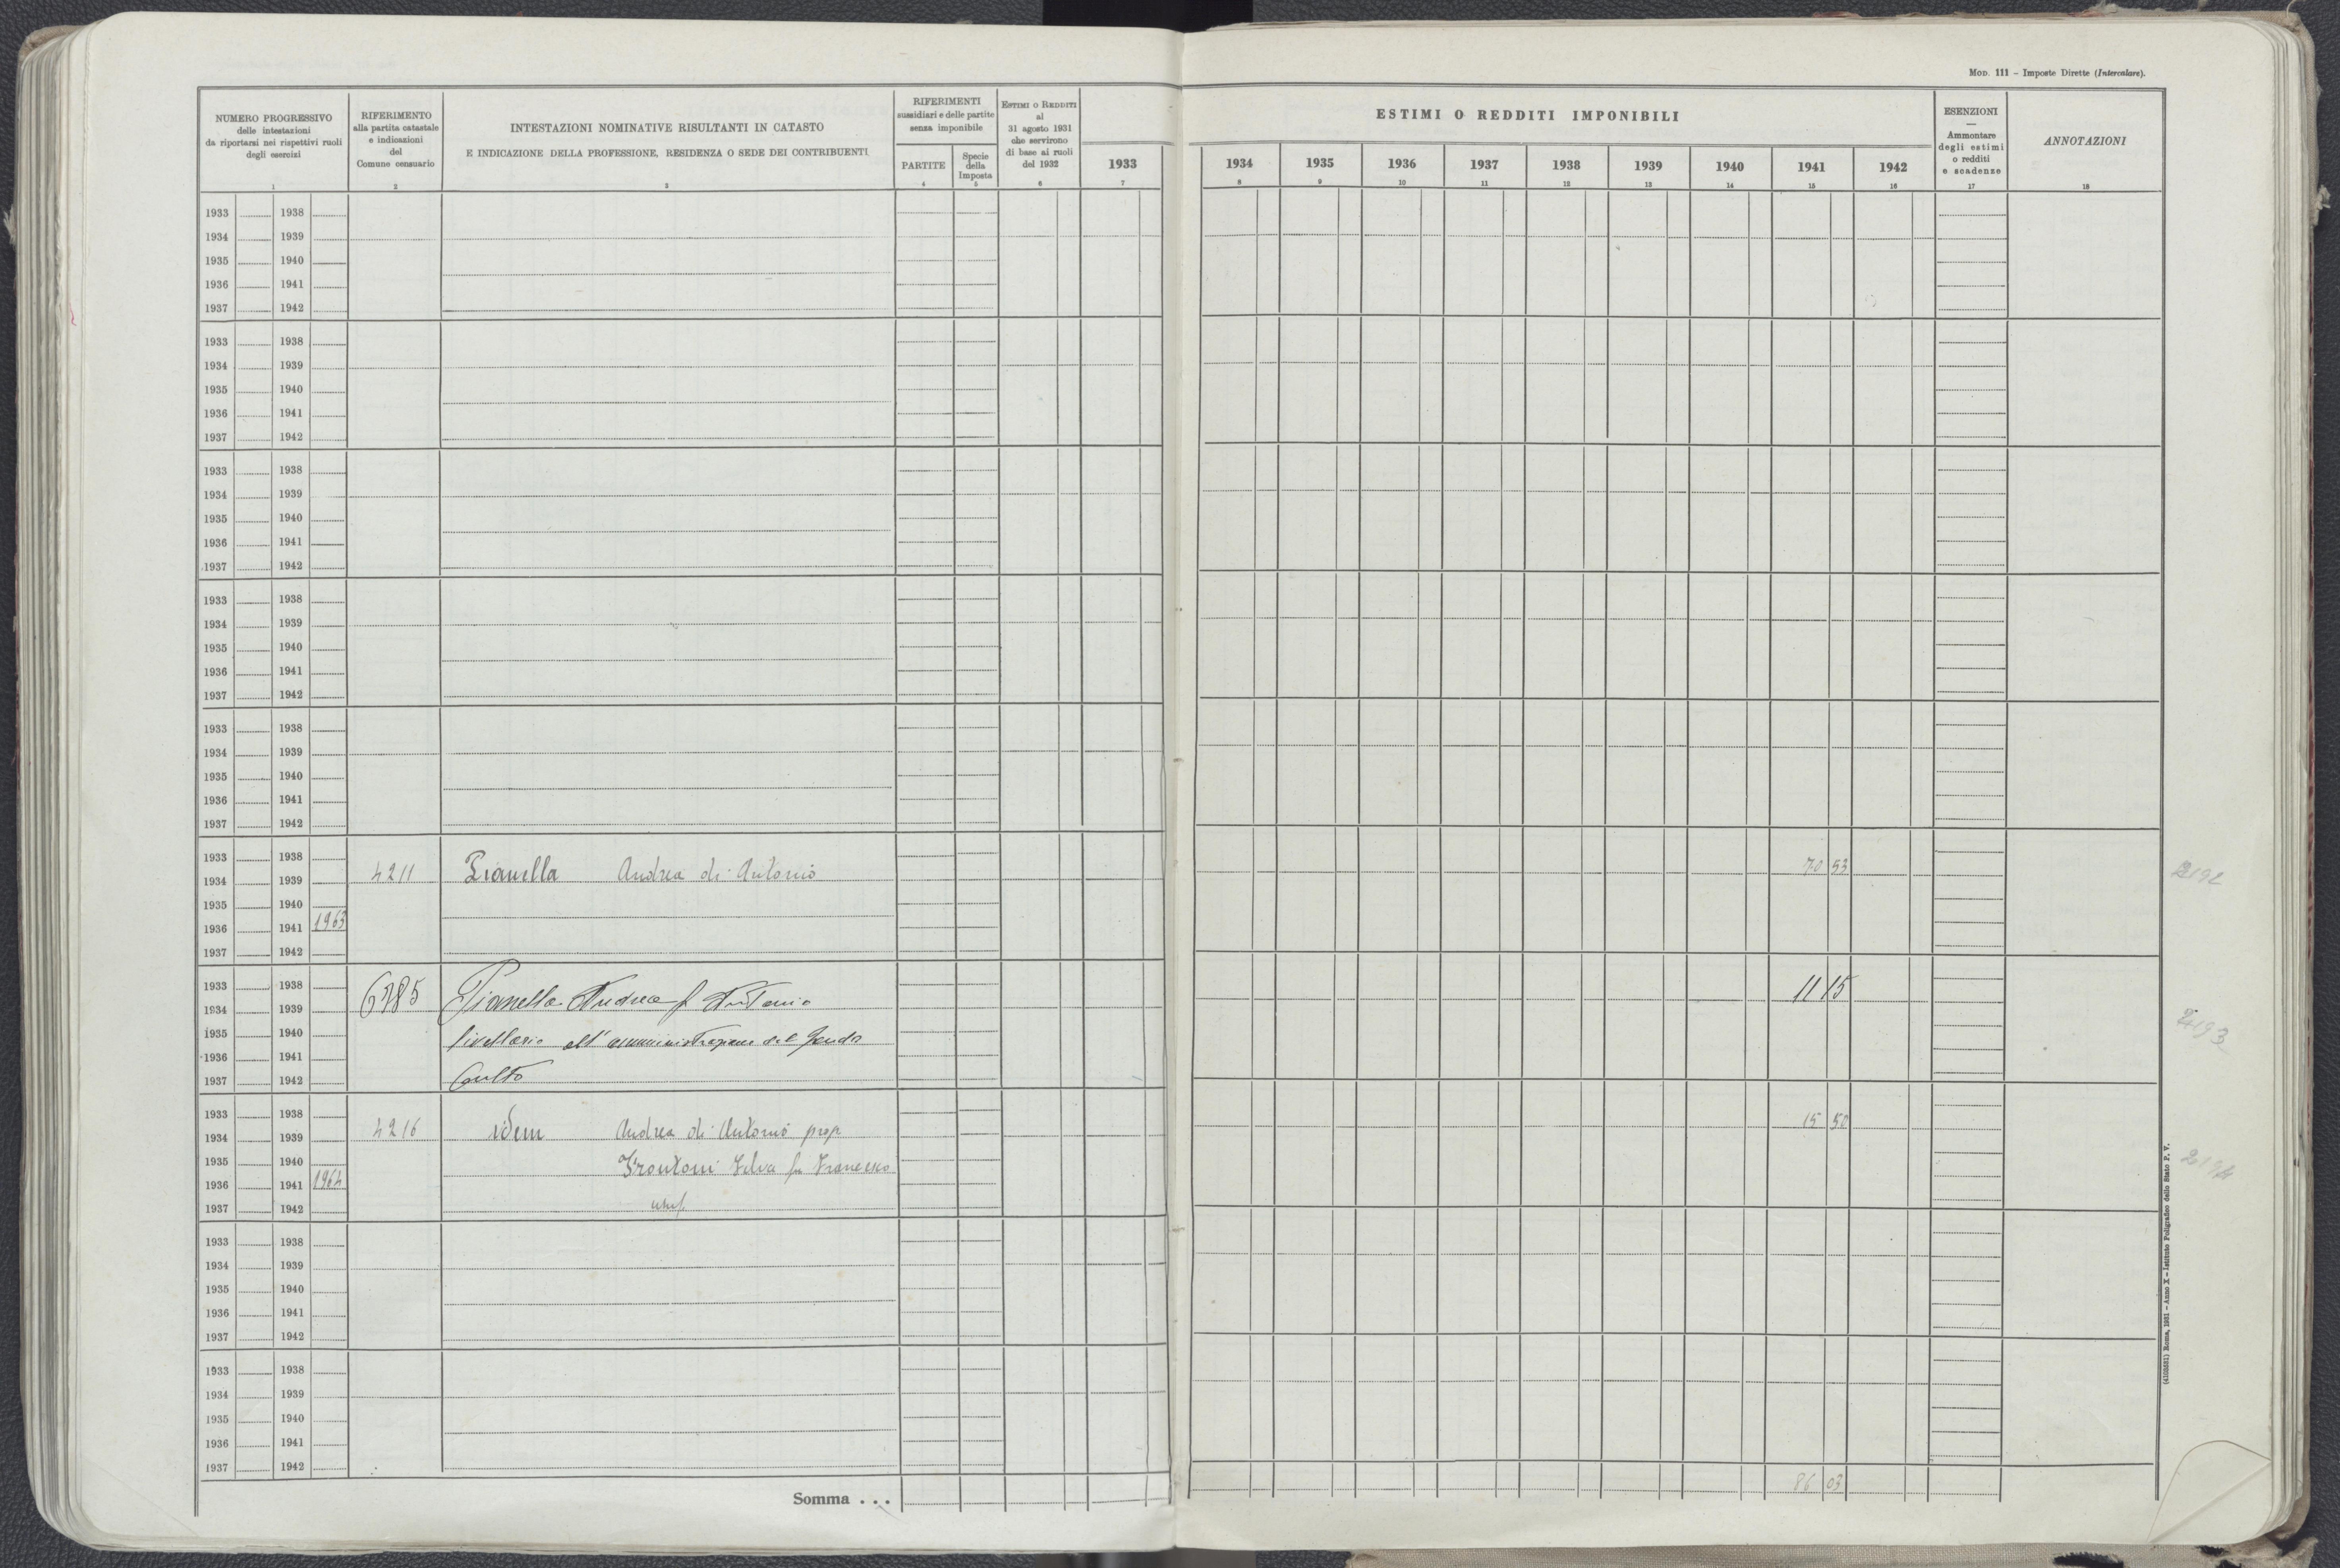 MOD. 111 – Imposte Dirette (Intercalare).
NUMERO PROGRESSIVO
delle intestazioni
da riportarsi nei rispettivi ruoli
degli esercizi
1
RIFERIMENTO
alla partita catastale
e indicazioni
del
Comune censuario
2
INTESTAZIONI NOMINATIVE RISULTANTI IN CATASTO
E INDICAZIONE DELLA PROFESSIONE, RESIDENZA O SEDE DEI CONTRIBUENTI
3
RIFERIMENTI
sussidiari e delle partite
senza imponibile
PARTITE
4
Specie
della
Imposta
5
ESTIMI O REDDITI
al
31 agosto 1931
che servirono
di base ai ruoli
del 1932
6
ESTIMI O REDDITI IMPONIBILI
1933 1934 1935 1936 1937 1938 1939 1940 1941 1942
7 8 9 10 11 12 13 14 15 16
ESENZIONI
—
Ammontare
degli estimi
o redditi
e scadenze
17
ANNOTAZIONI
18
1933 1938
1934 1939
1935 1940
1936 1941
1937 1942
1933 1938
1934 1939
1935 1940
1936 1941
1937 1942
1933 1938
1934 1939
1935 1940
1936 1941
1937 1942
1933 1938
1934 1939
1935 1940
1936 1941
1937 1942
1933 1938
1934 1939
1935 1940
1936 1941
1937 1942
1933 1938
1934 1939 4211 Pianella Andrea di Antonio 70 53
1935 1940
1936 1941 1963
1937 1942
1933 1938
1934 1939 6785 Pianella Andrea f Antonio 11 15
1935 1940 livellario all'amministrazione del
1936 1941
1937 1942 Culto
2193
1933 1938
1934 1939 4216 idem Andrea di Antonio prop 15 50
1935 1940 Frontoni Ilva fu Francesco
1936 1941 1964
1937 1942 usuf.
2194
1933 1938
1934 1939
1935 1940
1936 1941
1937 1942
1933 1938
1934 1939
1935 1940
1936 1941
1937 1942
Somma . . . 86 03
(4103531) Roma, 1931 – Anno X – Istituto Poligrafico dello Stato P. V.